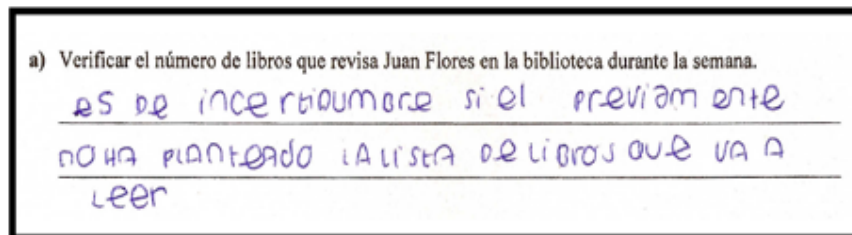 a) Verificar el número de libros que revisa Juan Flores en la biblioteca durante la semana.
es de incertidumbre si el previamente
no ha planteado la lista de libros que va a
Leer